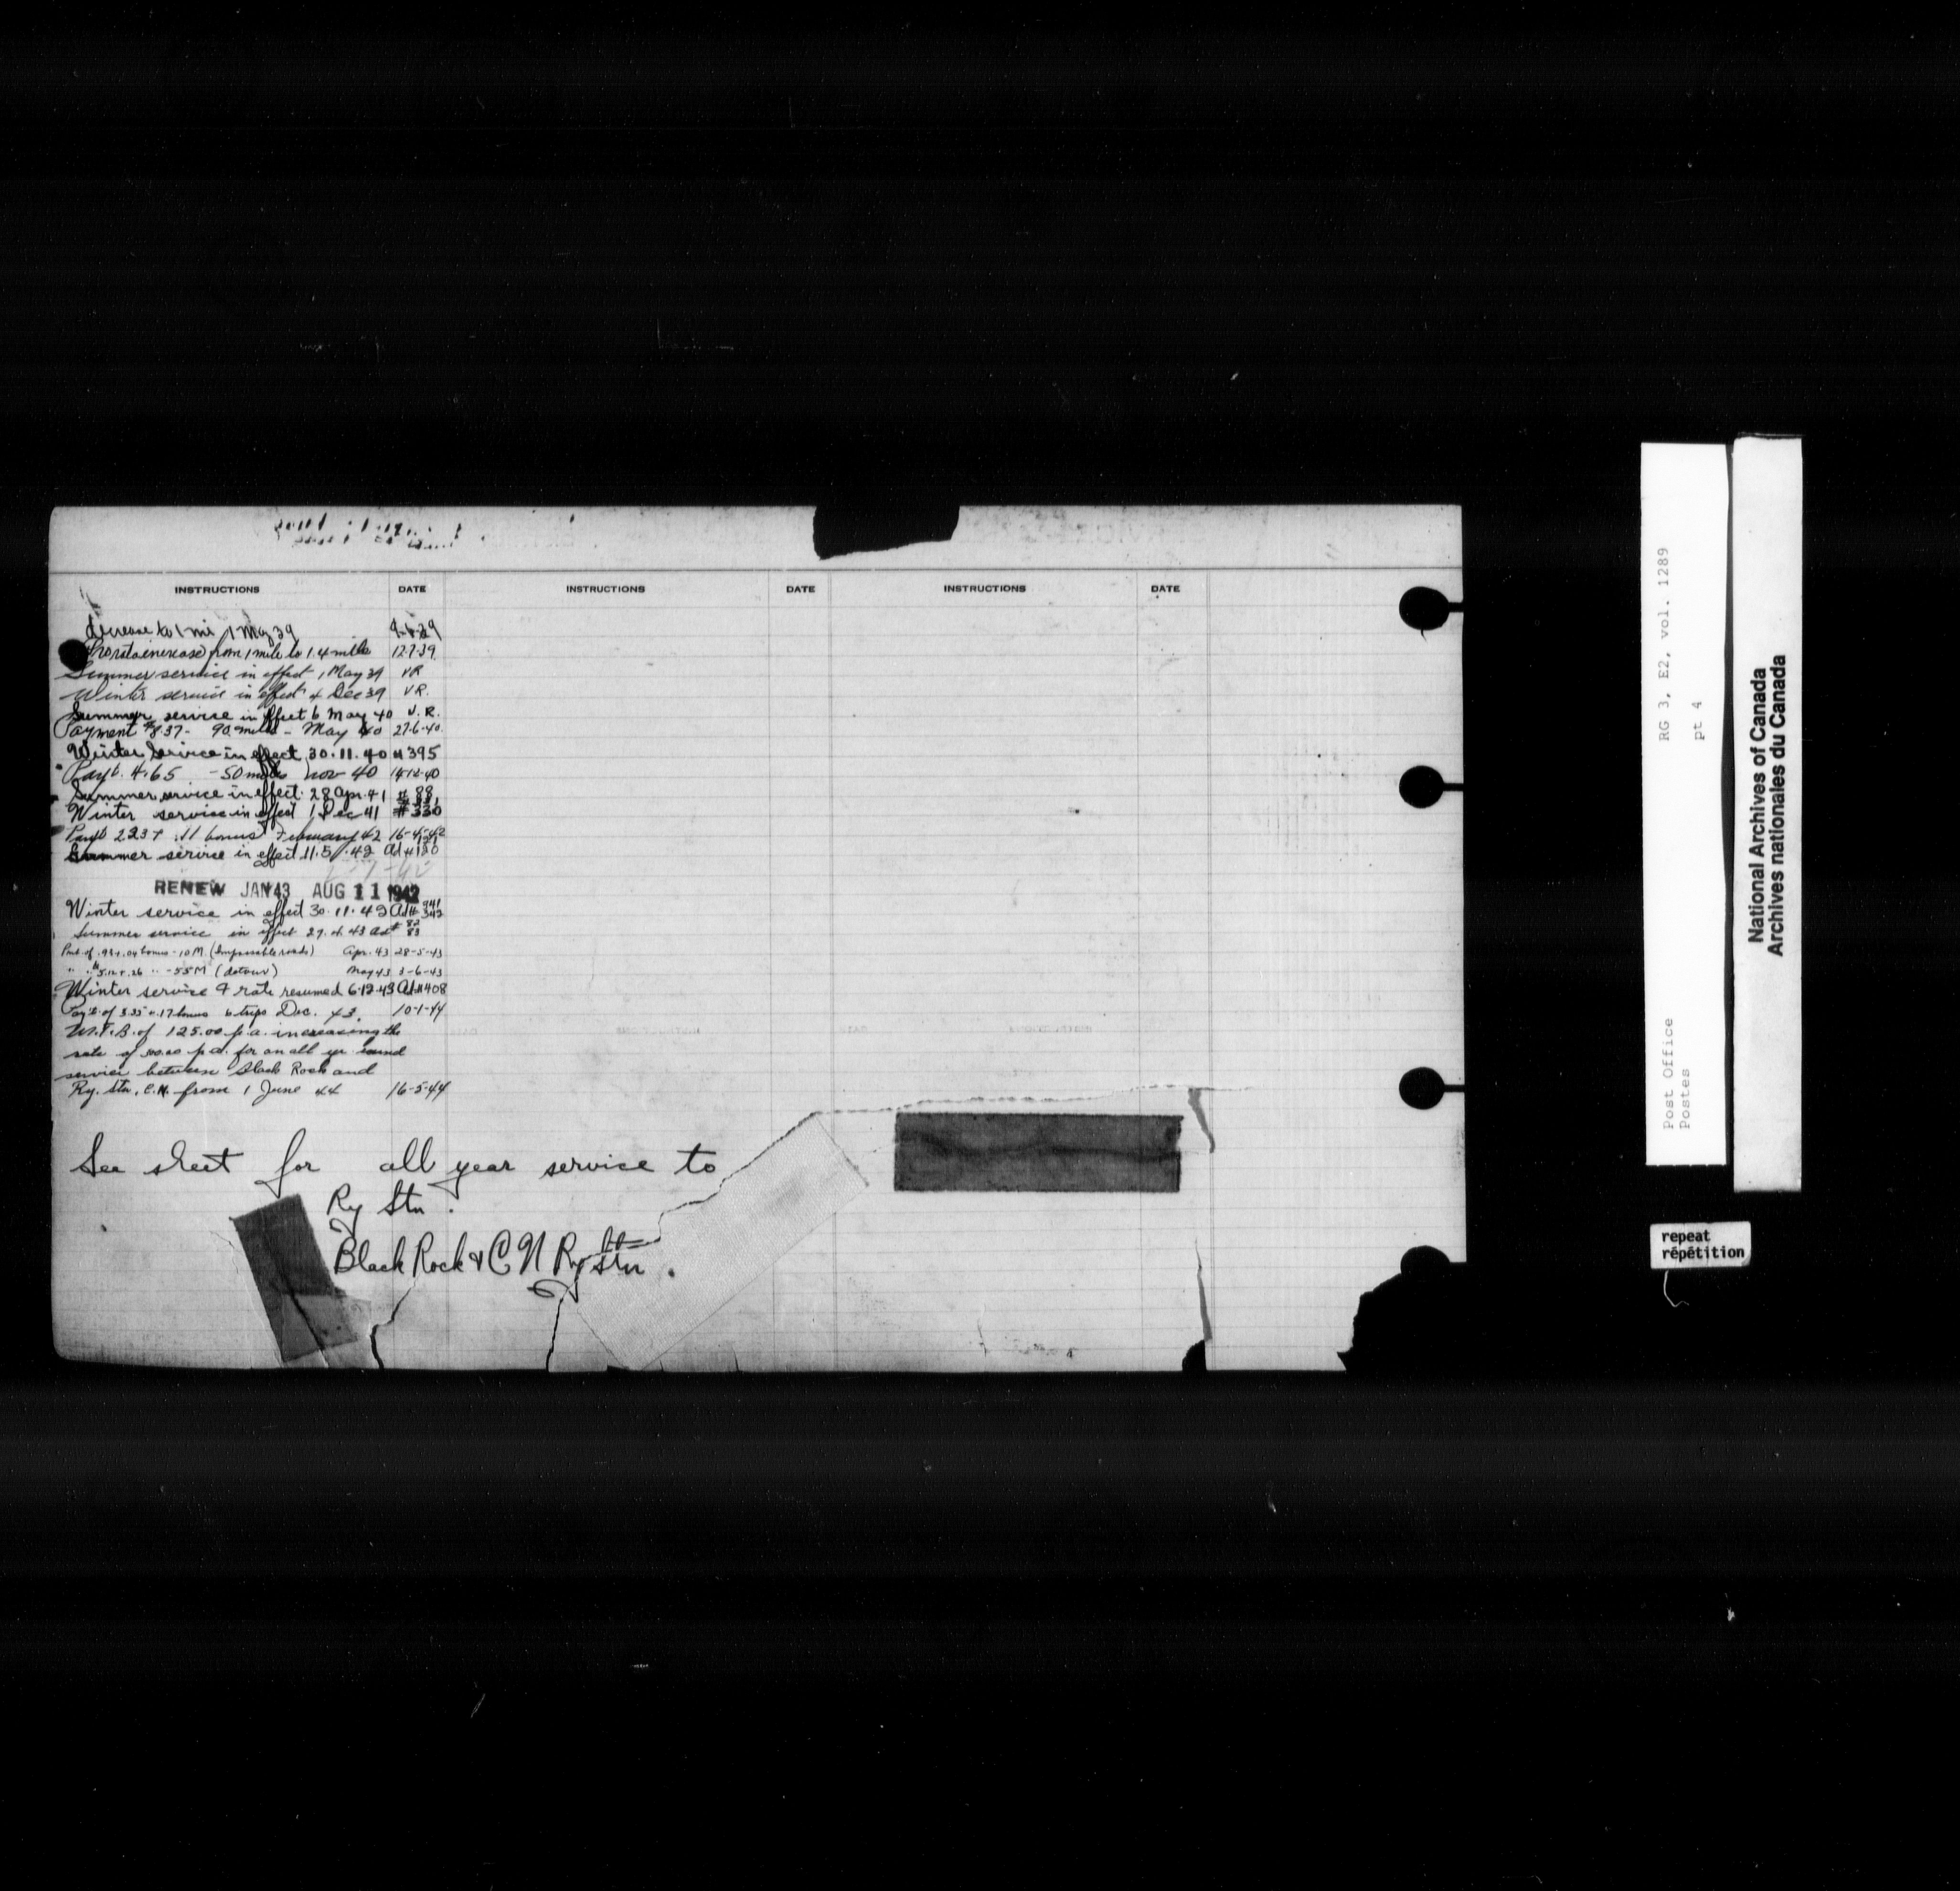 INSTRUCTIONS DATE INSTRUCTIONS DATE INSTRUCTIONS DATE
decrease to 1 mi 1 May 39 9-6-39
increase from 1 mile to 1.4 mile 12-7-39
Summer service in effect 1 May 39 VR
Winter service in effect 4 Dec 39 VR.
Summer service in effect 6 May 40 V.R.
Payment 8.37 - 90 miles - May 40 27-6-40
Winter Service in effect 30.11.40 # 395
Payt. 4.65 - 50 miles Nov 40 14-12-40
Summer service in effect 28 Apr. 41 # 88
Winter service in effect 1 Dec 41 # 330
Payt 2.23 + .11 bonus February 42 16-4-42
Summer service in effect 11.5.42 Ad #
RENEW JAN 43 AUG 11 1942
Winter service in effect 30.11.42 Ad# 341 342
Summer service in effect 29.4.43 Ad# 82 83
Pmt of .93 + .04 bonus - 10 M (Impassable roads) Apr. 43 28-5-43
" " 5.12 + .26 " - 55 M (detour) May 43 3-6-43
Winter service & rate resumed 6-12-43 Ad. # 408
Pay't of 3.35 + .17 bonus 6 trips Dec. 43. 10-1-44
W.T.B. of 125.00 p.a. increasing the
rate of 300.00 p.a. for an all yr. round
service between Black Rock and
Ry. Stn. C.N. from 1 June 44 16-5-44
See sheet for all year service to
Ry Stn.
Black Rock & C N Ry Stn.
RG 3, E2, vol. 1289
pt 4
Post Office
Postes
National Archives of Canada
Archives nationales du Canada
repeat
répétition